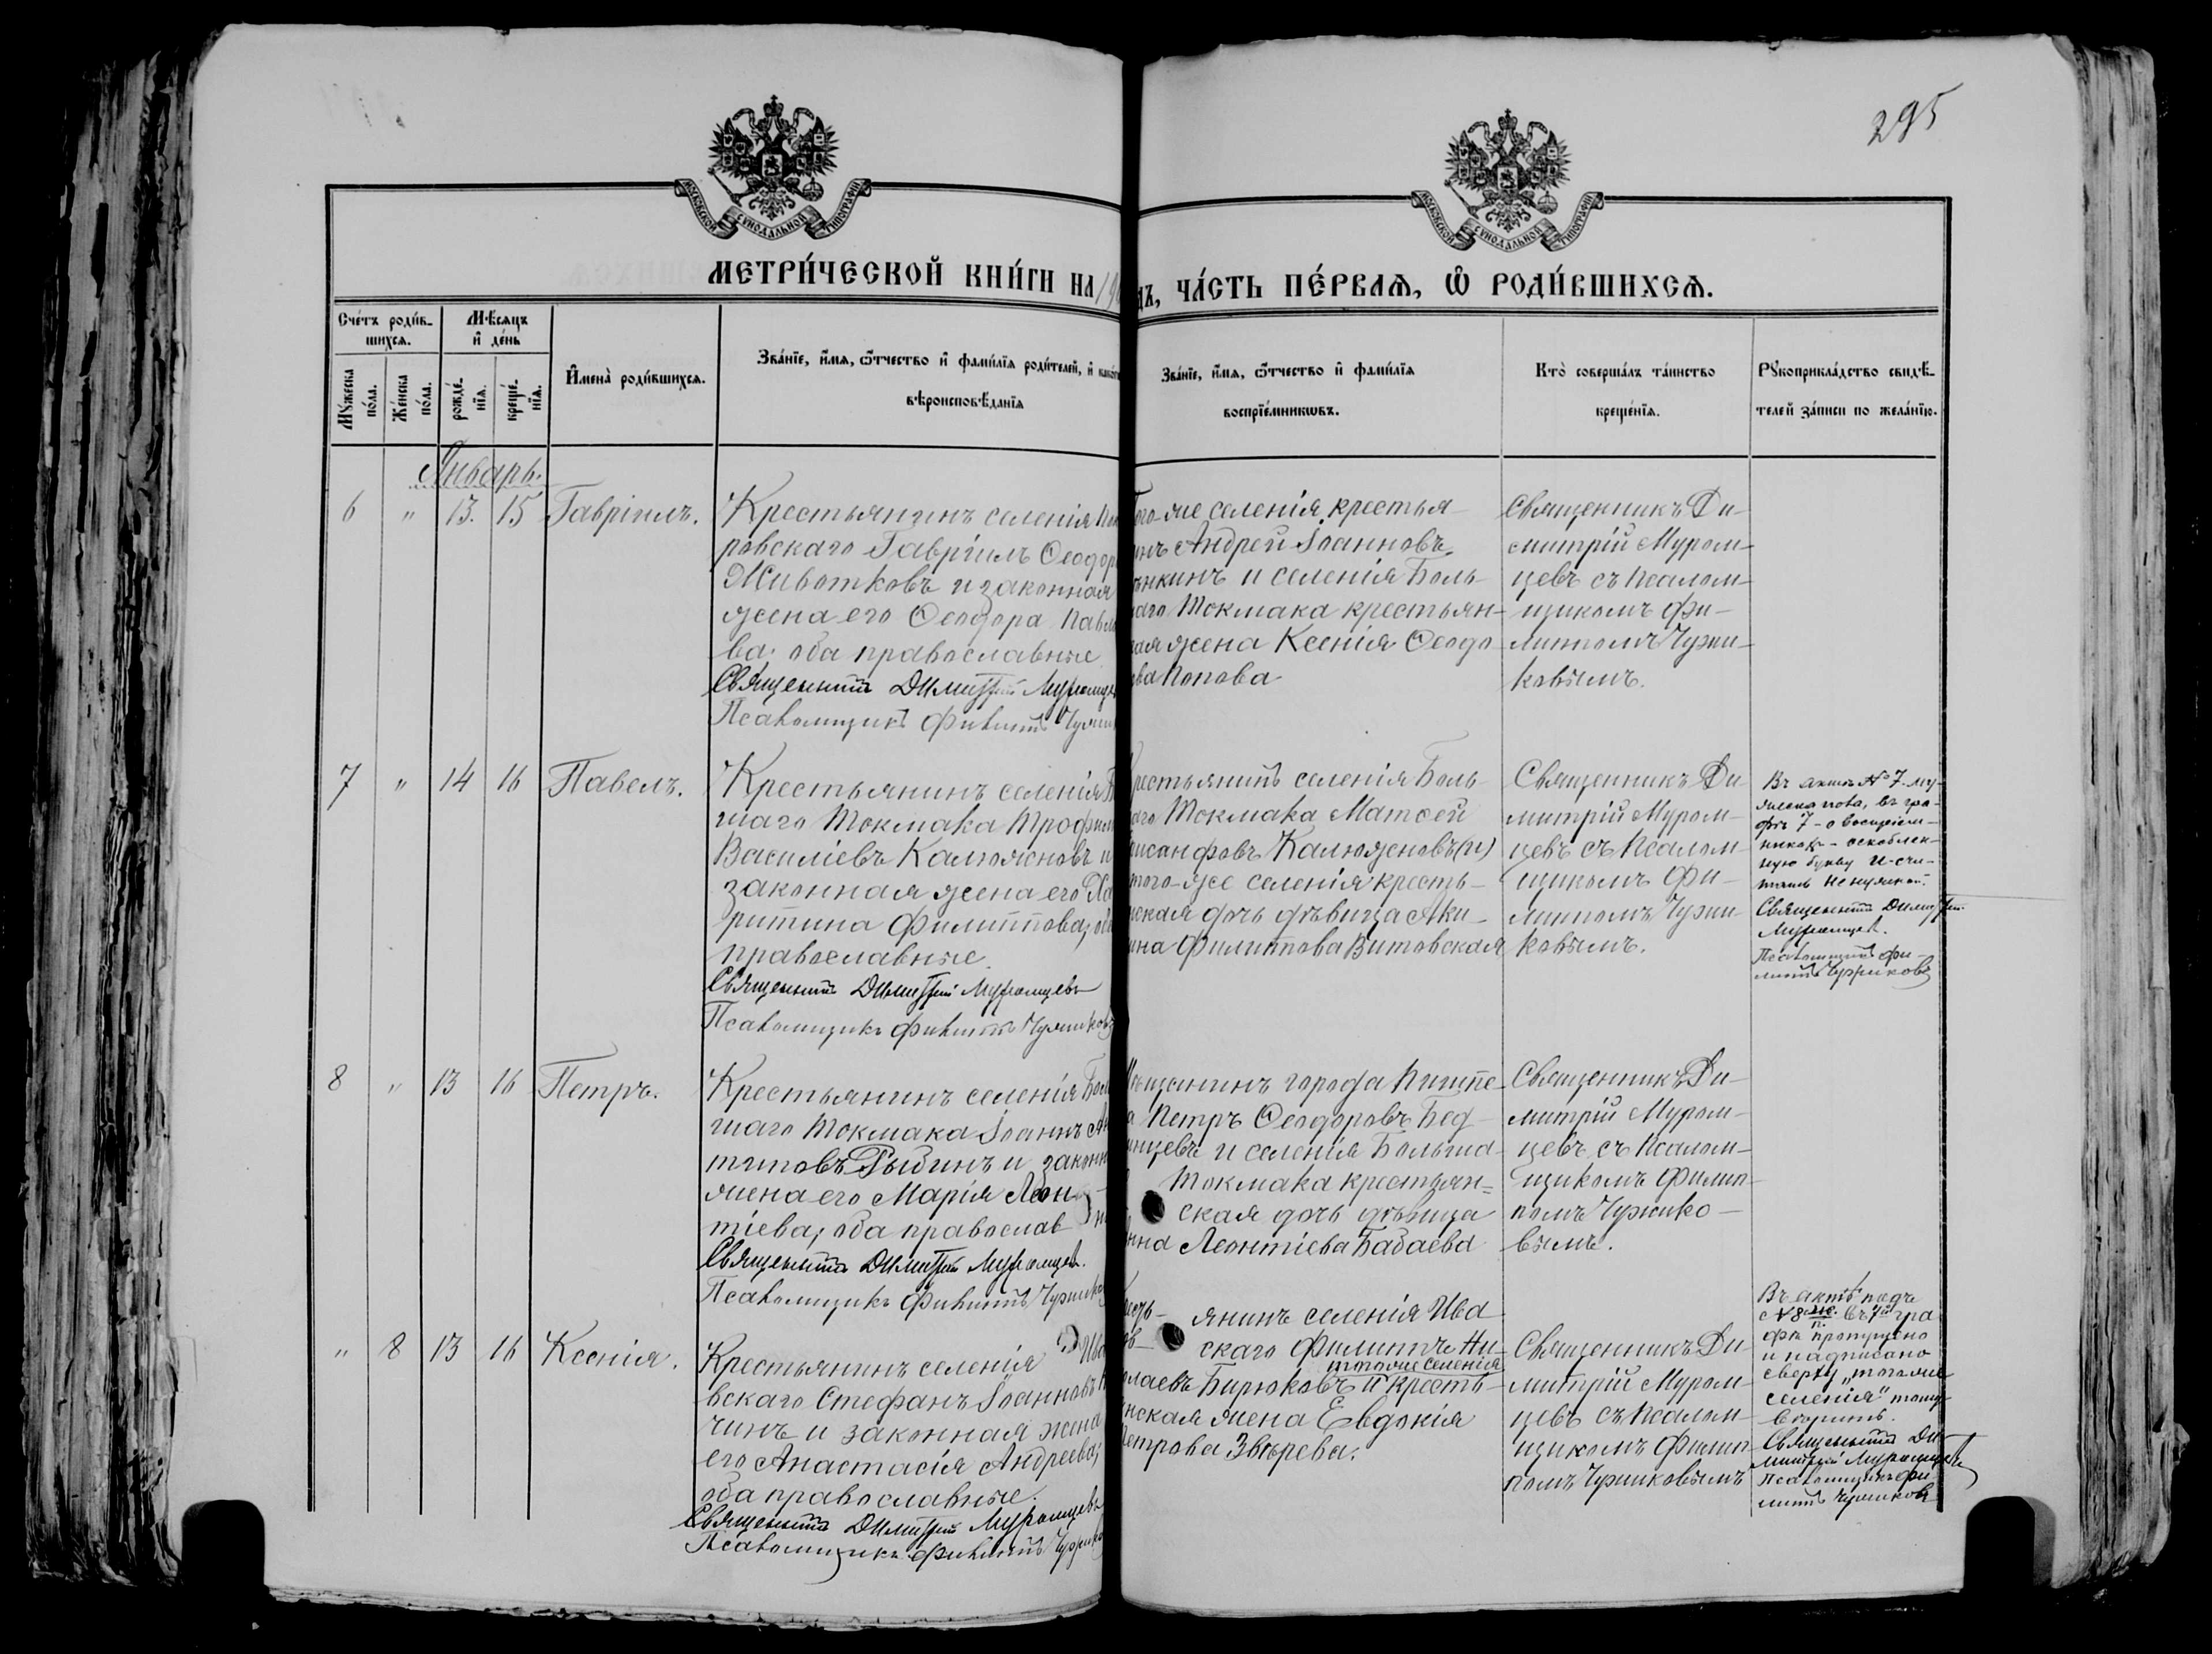 295
МОСКОВСКОЙ СѴНОДАЛЬНОЙ ТИПОГРАФІИ
МОСКОВСКОЙ СѴНОДАЛЬНОЙ ТИПОГРАФІИ
МЕТРИ́ЧЕСКОЙ КНИ́ГИ НА 19
ДЪ, ЧА́СТЬ ПЕ́РВАѦ, Ѡ҆ РОДИ́ВШИХСѦ.
Сче́тъ роди́в-
шихсѧ.
Мѣ́сѧцъ
и҆ де́нь
Мꙋ́жеска
по́ла.
Же́нска
по́ла.
рожде́-
нїѧ.
креще́-
нїѧ.
И҆мена̀ роди́вшихсѧ.
Зва́нїе, и҆́мѧ, ѻ҆́тчество и҆ фами́лїѧ роди́телей, и҆
вѣроисповѣ́данїѧ
Зва́нїе, и҆́мѧ, ѻ҆́тчество и҆ фами́лїѧ
воспрїе́мникѡвъ.
Кто̀ соверша́лъ та́инство
креще́нїѧ.
Рꙋкоприкла́дство свидѣ́-
телей за́писи по жела́нїю.
Январь.
6 " 13. 15 Гавріилъ.
Крестьянинъ селенія
ровскаго Гавріилъ Ѳеодор
Животковъ и законная
жена его Ѳеодора Павло
ва; оба православные
Священникъ Димитрій Муромцев
Псаломщикъ Филиппъ Чужик
того-же селенія крестья
инъ Андрей Іоанновъ
нкинъ и селенія Боль-
аго Токмака крестьян-
ая жена Ксенія Ѳеодо
ва Попова
Священникъ Ди-
митрій Муром-
цевъ съ псалом-
щикомъ Фи-
липпомъ Чужи-
ковымъ.
7 " 14 16 Павелъ.
Крестьянинъ селенія
шаго Токмака Трофим
Василіевъ Калюжновъ и
законная жена его Ха
ритина Филиппова; оба
православные.
Священникъ Димитрій Муромцевъ
Псаломщикъ Филиппъ Чужиковъ
рестьянинъ селенія Боль-
аго Токмака Матѳей
исанфовъ Калюженовъ(и)
того-же селенія кресть-
нская дочь дѣвица Аки-
ина Филиппова Витовская
Священникъ Ди-
митрій Муром-
цевъ съ псалом-
щикомъ Фи-
липпомъ Чужи-
ковымъ.
Въ актѣ № 7 му-
жеска пола, въ гра-
фѣ 7 - о воспріем-
никахъ - оскоблен-
ную букву и счи-
тать ненужной.
Священникъ Димитрій
Муромцев.
Псаломщикъ Фи-
липпъ Чужиковъ
8 " 13 16 Петръ.
Крестьянинъ селенія Бол
шаго Токмака Іоаннъ Ан
типовъ Рыбинъ и законн
жена его Марія Леон-
тіева; оба православ
Священникъ Димитрій Муромцев.
Псаломщикъ Филиппъ Чужико
ѣщанинъ города Пишпе-
а Петръ Ѳеодоровъ Бед-
инцевъ и селенія Больша-
Токмака крестьян=
ская дочь дѣвица
нна Леонтіева Бабаева
Священникъ Ди-
митрій Муром-
цевъ съ псалом-
щикомъ Филип-
помъ Чужико-
вымъ.
" 8 13 16 Ксенія.
Крестьянинъ селенія Ива
вскаго Стефанъ Іоанновъ
чинъ и законная жена
его Анастасія Андреева;
оба православные.
Священникъ Димитрій Муромцевъ
Псаломщикъ Филиппъ Чужико
янинъ селенія Ива
скаго Филиппъ Ни-
тогоже селенія
лаевъ Бирюковъ и кресть-
нская жена Евдокія
етрова Звѣрева.
Священникъ Ди-
митрій Муром-
цевъ съ псалом-
щикомъ Филип
помъ Чужиковымъ
Въ актѣ подъ
№ 8 въ 7й гра
фѣ пропущено
и надписано
сверху „тогоже
селенія"
Священникъ Ди-
митрій Муромцевъ
Псаломщикъ Фи-
липпъ Чужиковъ